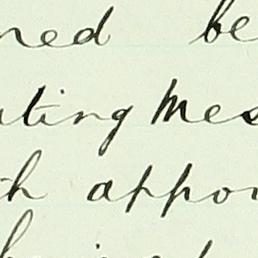 ned be
ating Mes
th appoi